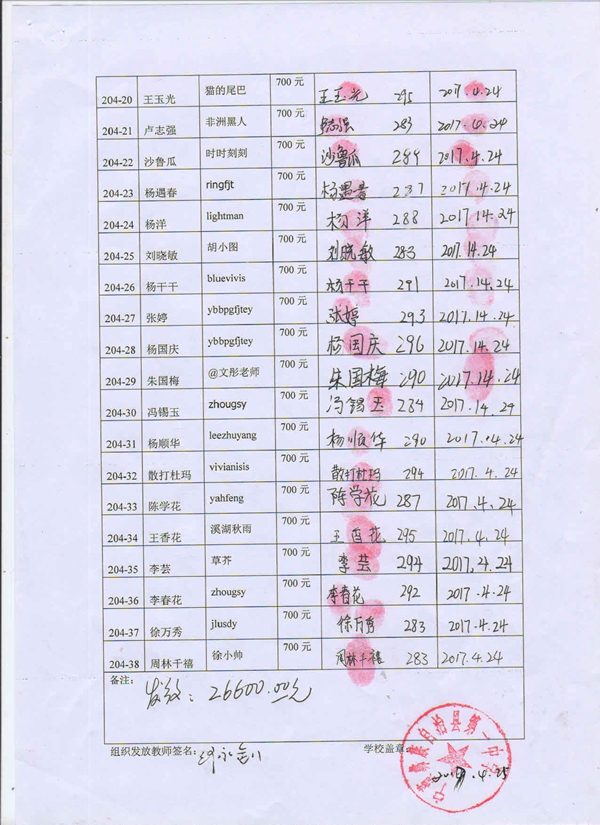 204-20 王玉光 猫的尾巴 700 元 王玉光 295 2017.4.24
204-21 卢志强 非洲黑人 700 元 283 2017.4.24
204-22 沙鲁瓜 时时刻刻 700 元 沙鲁瓜 289 2017.4.24
204-23 杨遇春 ringfjt 700 元 杨遇春 2017.4.24
204-24 杨洋 lightman 700 元 杨洋 288 2017.14.24
204-25 刘晓敏 胡小图 700 元 刘晓敏 283 2017.14.24
204-26 杨干干 bluevivis 700 元 杨干干 291 2017.14.24
204-27 张婷 ybbpgfjtey 700 元 张婷 293 2017.14.24
204-28 杨国庆 ybbpgfjtey 700 元 杨国庆 296 2017.14.24
204-29 朱国梅 @文彤老师 700 元 朱国梅 290 2017.14.24
204-30 冯锡玉 zhougsy 700 元 冯锡玉 284 2017.14.24
204-31 杨顺华 leezhuyang 700 元 杨顺华 290 2017.04.24
204-32 散打杜玛 vivianisis 700 元 散打杜玛 294 2017.4.24
204-33 陈学花 yahfeng 700 元 陈学花 287 2017.4.24
204-34 王香花 溪湖秋雨 700 元 王香花 295 2017.4.24
204-35 李芸 草芥 700 元 李芸 294 2017.4.24
204-36 李春花 zhougsy 700 元 李春花 292 2017.4.24
204-37 徐万秀 jlusdy 700 元 徐万秀 283 2017.4.24
204-38 周林千禧 徐小帅 700 元 周林千禧 283 2017.4.24
备注:
发放: 26600.00元
组织发放教师签名: 学校盖章:
族自治县第一中学
2017.4.25